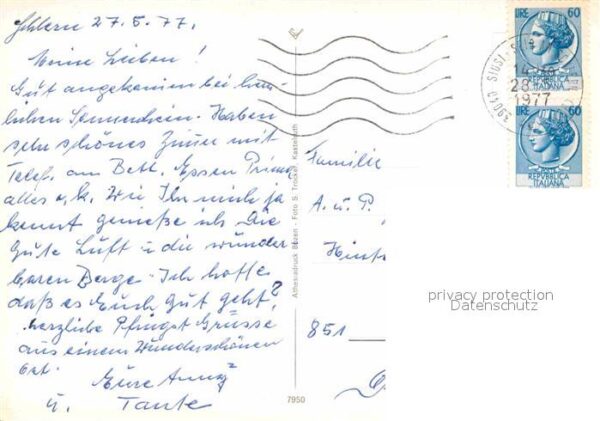 Schlern 27.5.77.
Meine Lieben!
Gut angekommen bei herr-
lichen Sonnenschein. Haben
sehr schönes Zimmer mit
Telef. am Bett. Essen Prima
alles o.k. Wie Ihr mich ja
kennt genieße ich die
Gute Luft u die wunder
baren Berge. Ich hoffe
daß es Euch Gut geht?
herzliche Pfingst Grüsse
aus einem Wunderschönen
Ort.
Eure
u. Tante
Athesiadruck Bozen - Foto S. Kastelruth
7950
Familie
A. u. P.
851
LIRE 60
REPVBBLICA
ITALIANA
LIRE 60
POSTE
REPVBBLICA
ITALIANA
39040 SIUSI
28.5
1977
privacy protection
Datenschutz